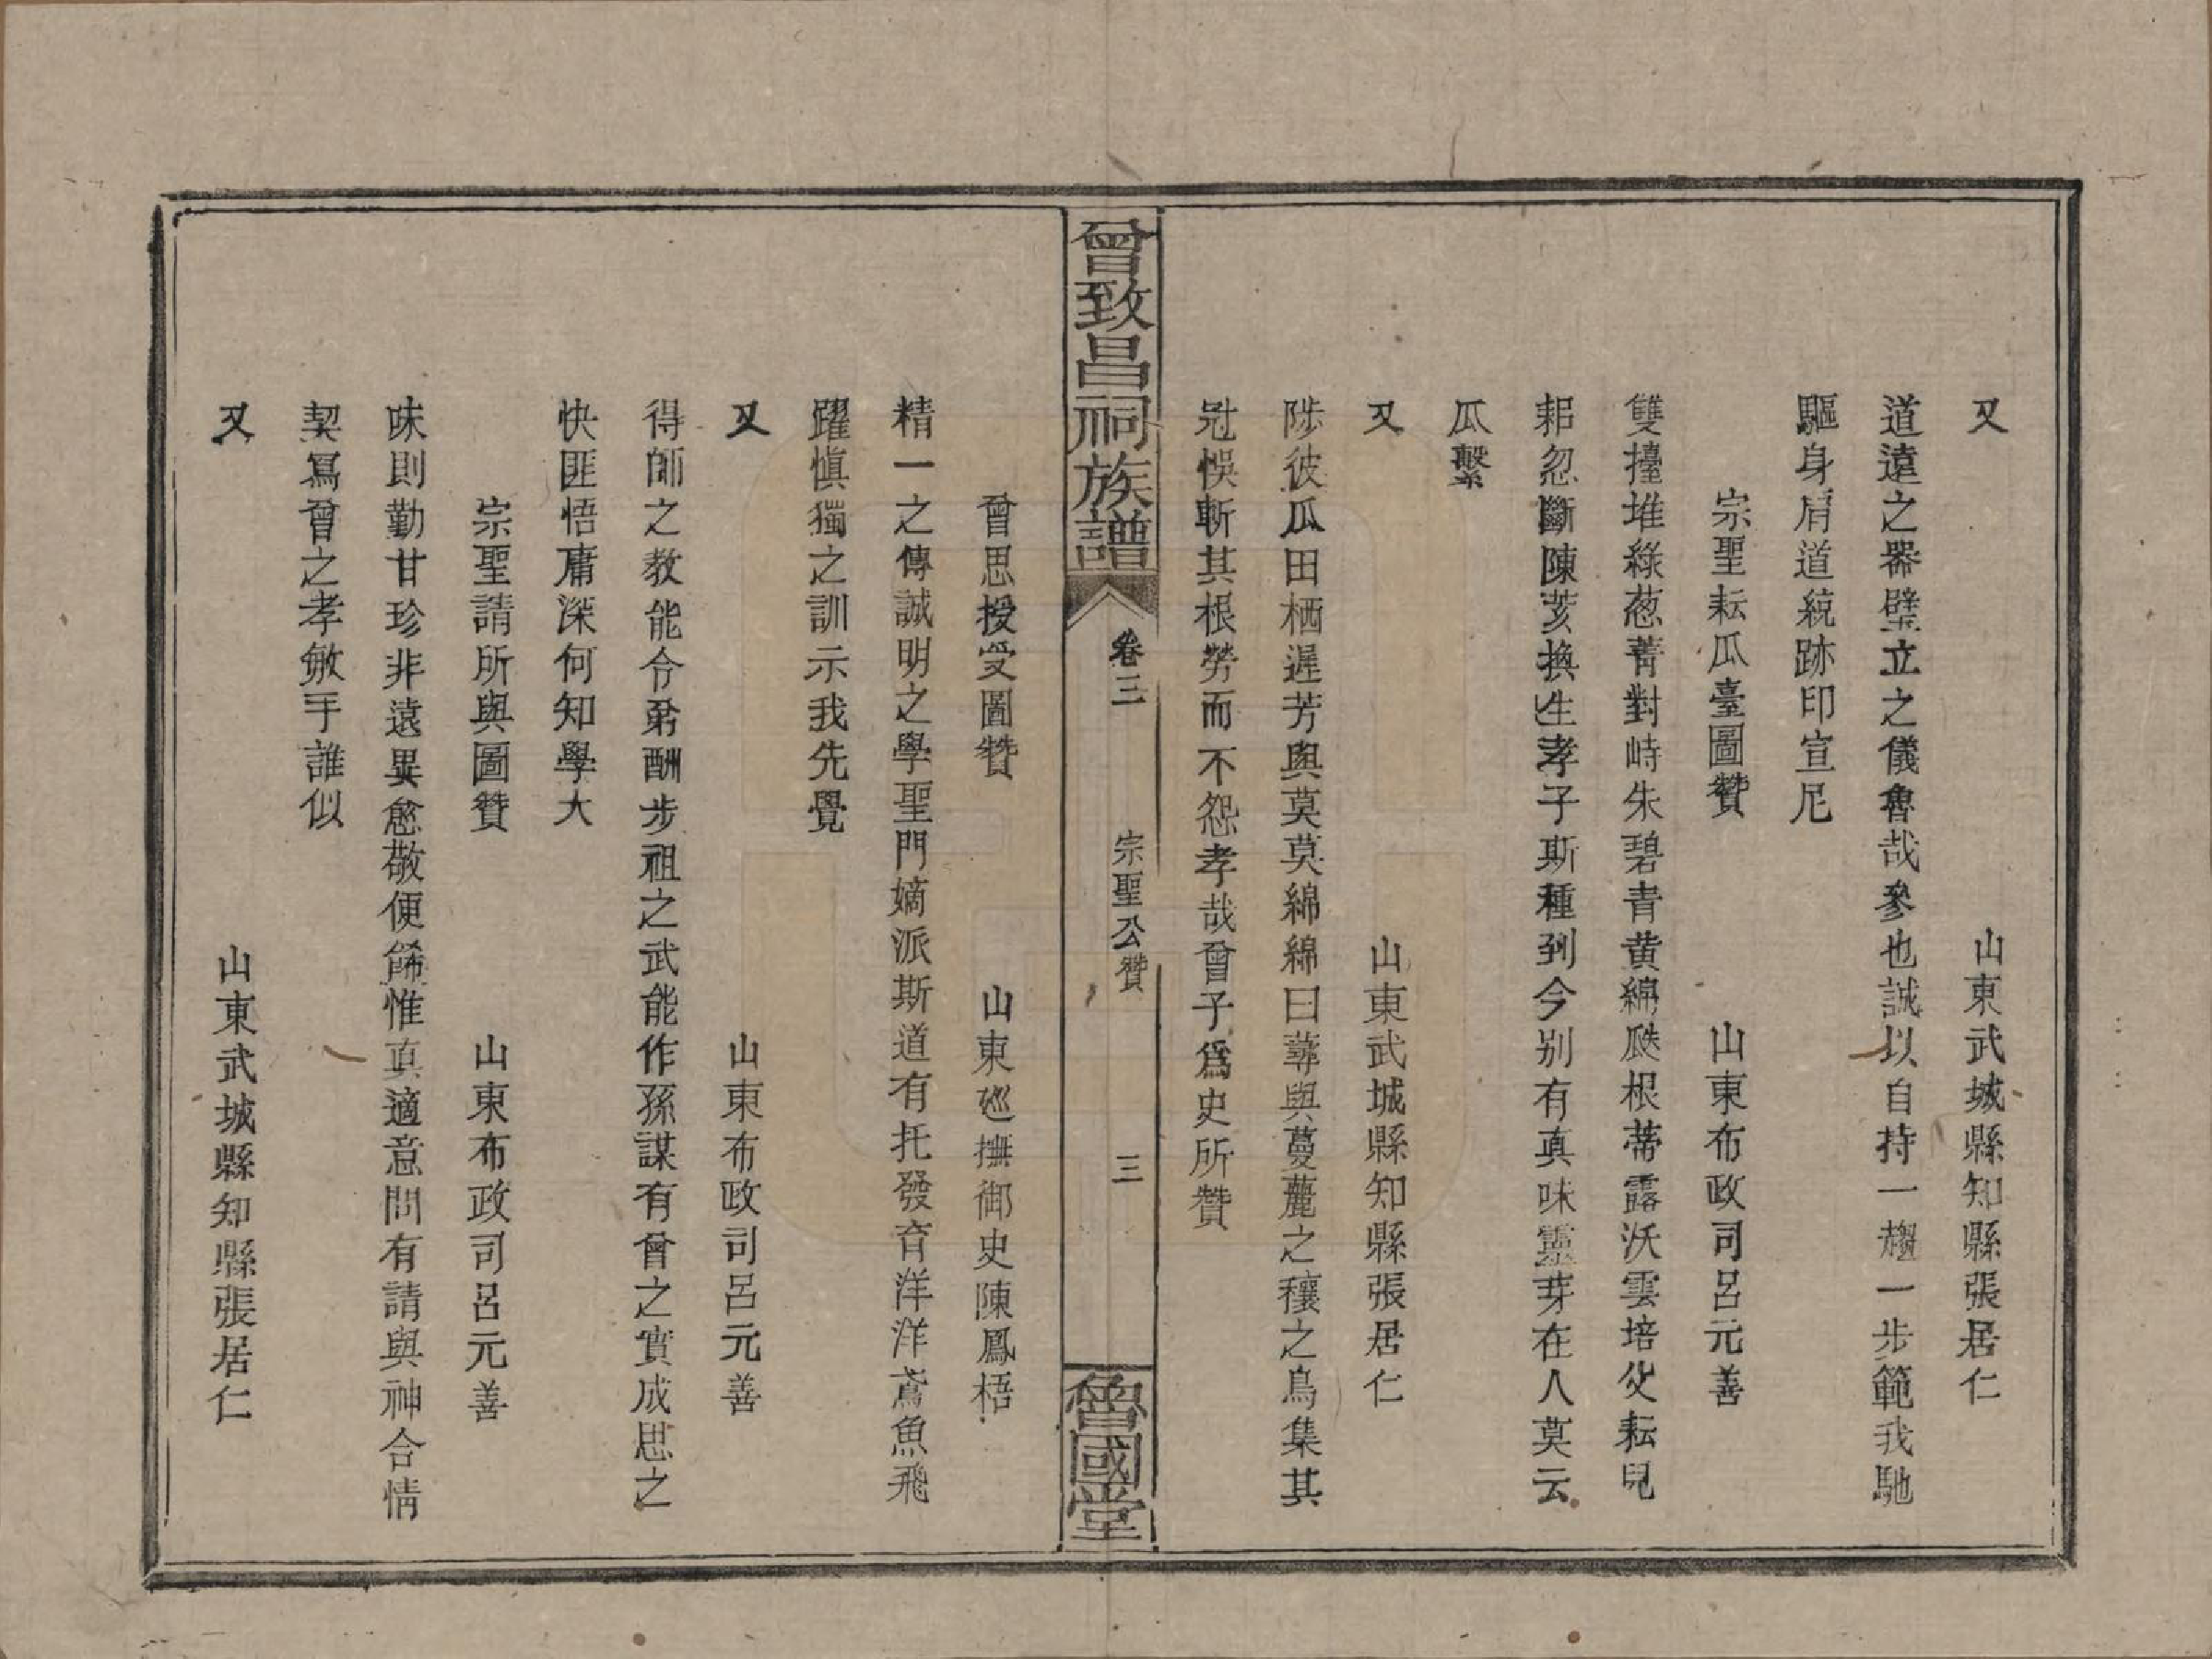 又　山東武城縣知縣張居仁
道遠之器璧立之儀魯哉參也誠以自持一趨一步範我馳
驅身肩道統跡印宣尼
宗聖耘瓜臺圖贊　山東布政司呂元善
雙擡堆綠葱菁對峙朱碧青黄綿瓞根蒂露沃雲培父耘兒
耜忽斷陳荄換生孝子斯種到今别有真味靈芽在人莫云
瓜繫
又　山東武城縣知縣張居仁
陟彼瓜田栖遲芳與莫莫綿綿曰蓴與蔓蘪之穰之鳥集其
冠悞斬其根勞而不怨孝哉曾子爲史所贊
曾致昌祠族譜　卷三　宗聖公贊　三　魯國堂
曾思授受圖贊　山東廵撫御史陳鳳梧
精一之傳誠明之學聖門嫡派斯道有托發育洋洋鳶魚飛
躍慎獨之訓示我先覺
又　山東布政司呂元善
得師之教能令弟酬步祖之武能作孫謀有曾之實成思之
快匪悟庸深何知學大
宗聖請所與圖贊　山東布政司呂元善
味則勤甘珍非遠異愈敬便餙惟真適意問有請與神合情
契寫曾之孝敏手誰似
又　山東武城縣知縣張居仁